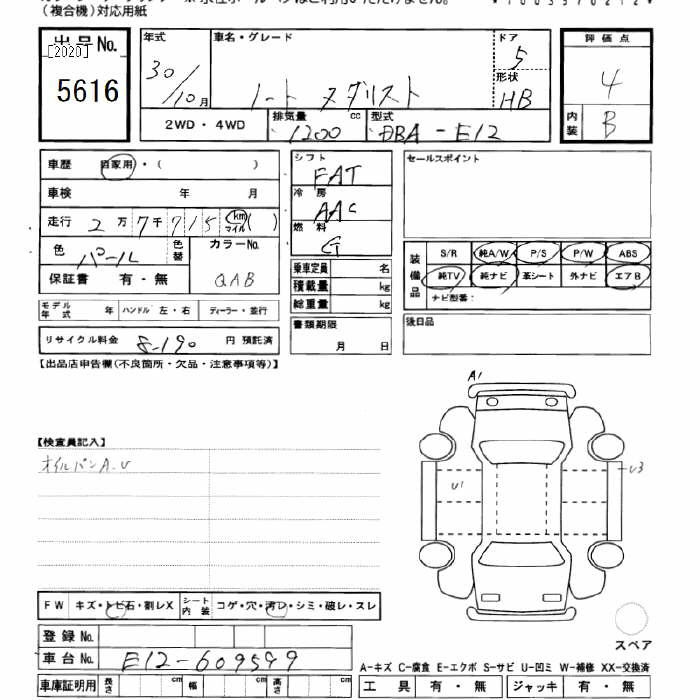 （複合機）対応用紙
出品No.
[2020]
5616
年式 30/10月
車名・グレード ノート メダリスト
ドア 5
形状 HB
2WD・4WD
排気量 1200 cc
型式 DBA-E12
評価点 4
内装 B
車歴 自家用・（ ）
車検 年 月
走行 2万7千715 km マイル （ ）
色 パール 色替
カラーNo. QAB
保証書 有・無
モデル年式 年 ハンドル 左・右 ディーラー・並行
リサイクル料金 8-190 円 預託済
シフト FAT
冷房 AAC
燃料 G
乗車定員 名
積載量 kg
総重量 kg
書類期限
月 日
セールスポイント
装備品
S/R 純A/W P/S P/W ABS
純TV 純ナビ 革シート 外ナビ エアB
ナビ型番：
後日品
【出品店申告欄（不良箇所・欠品・注意事項等）】
【検査員記入】
オイルパンA.U
A1
U1
U3
スペア
FW キズ・トビ石・割レX
シート内装 コゲ・穴・汚レ・シミ・破レ・スレ
登録No.
車台No. E12-609599
車庫証明用 長さ cm 幅 cm 高さ cm
A-キズ C-腐食 E-エクボ S-サビ U-凹ミ W-補修 XX-交換済
工具 有・無 ジャッキ 有・無